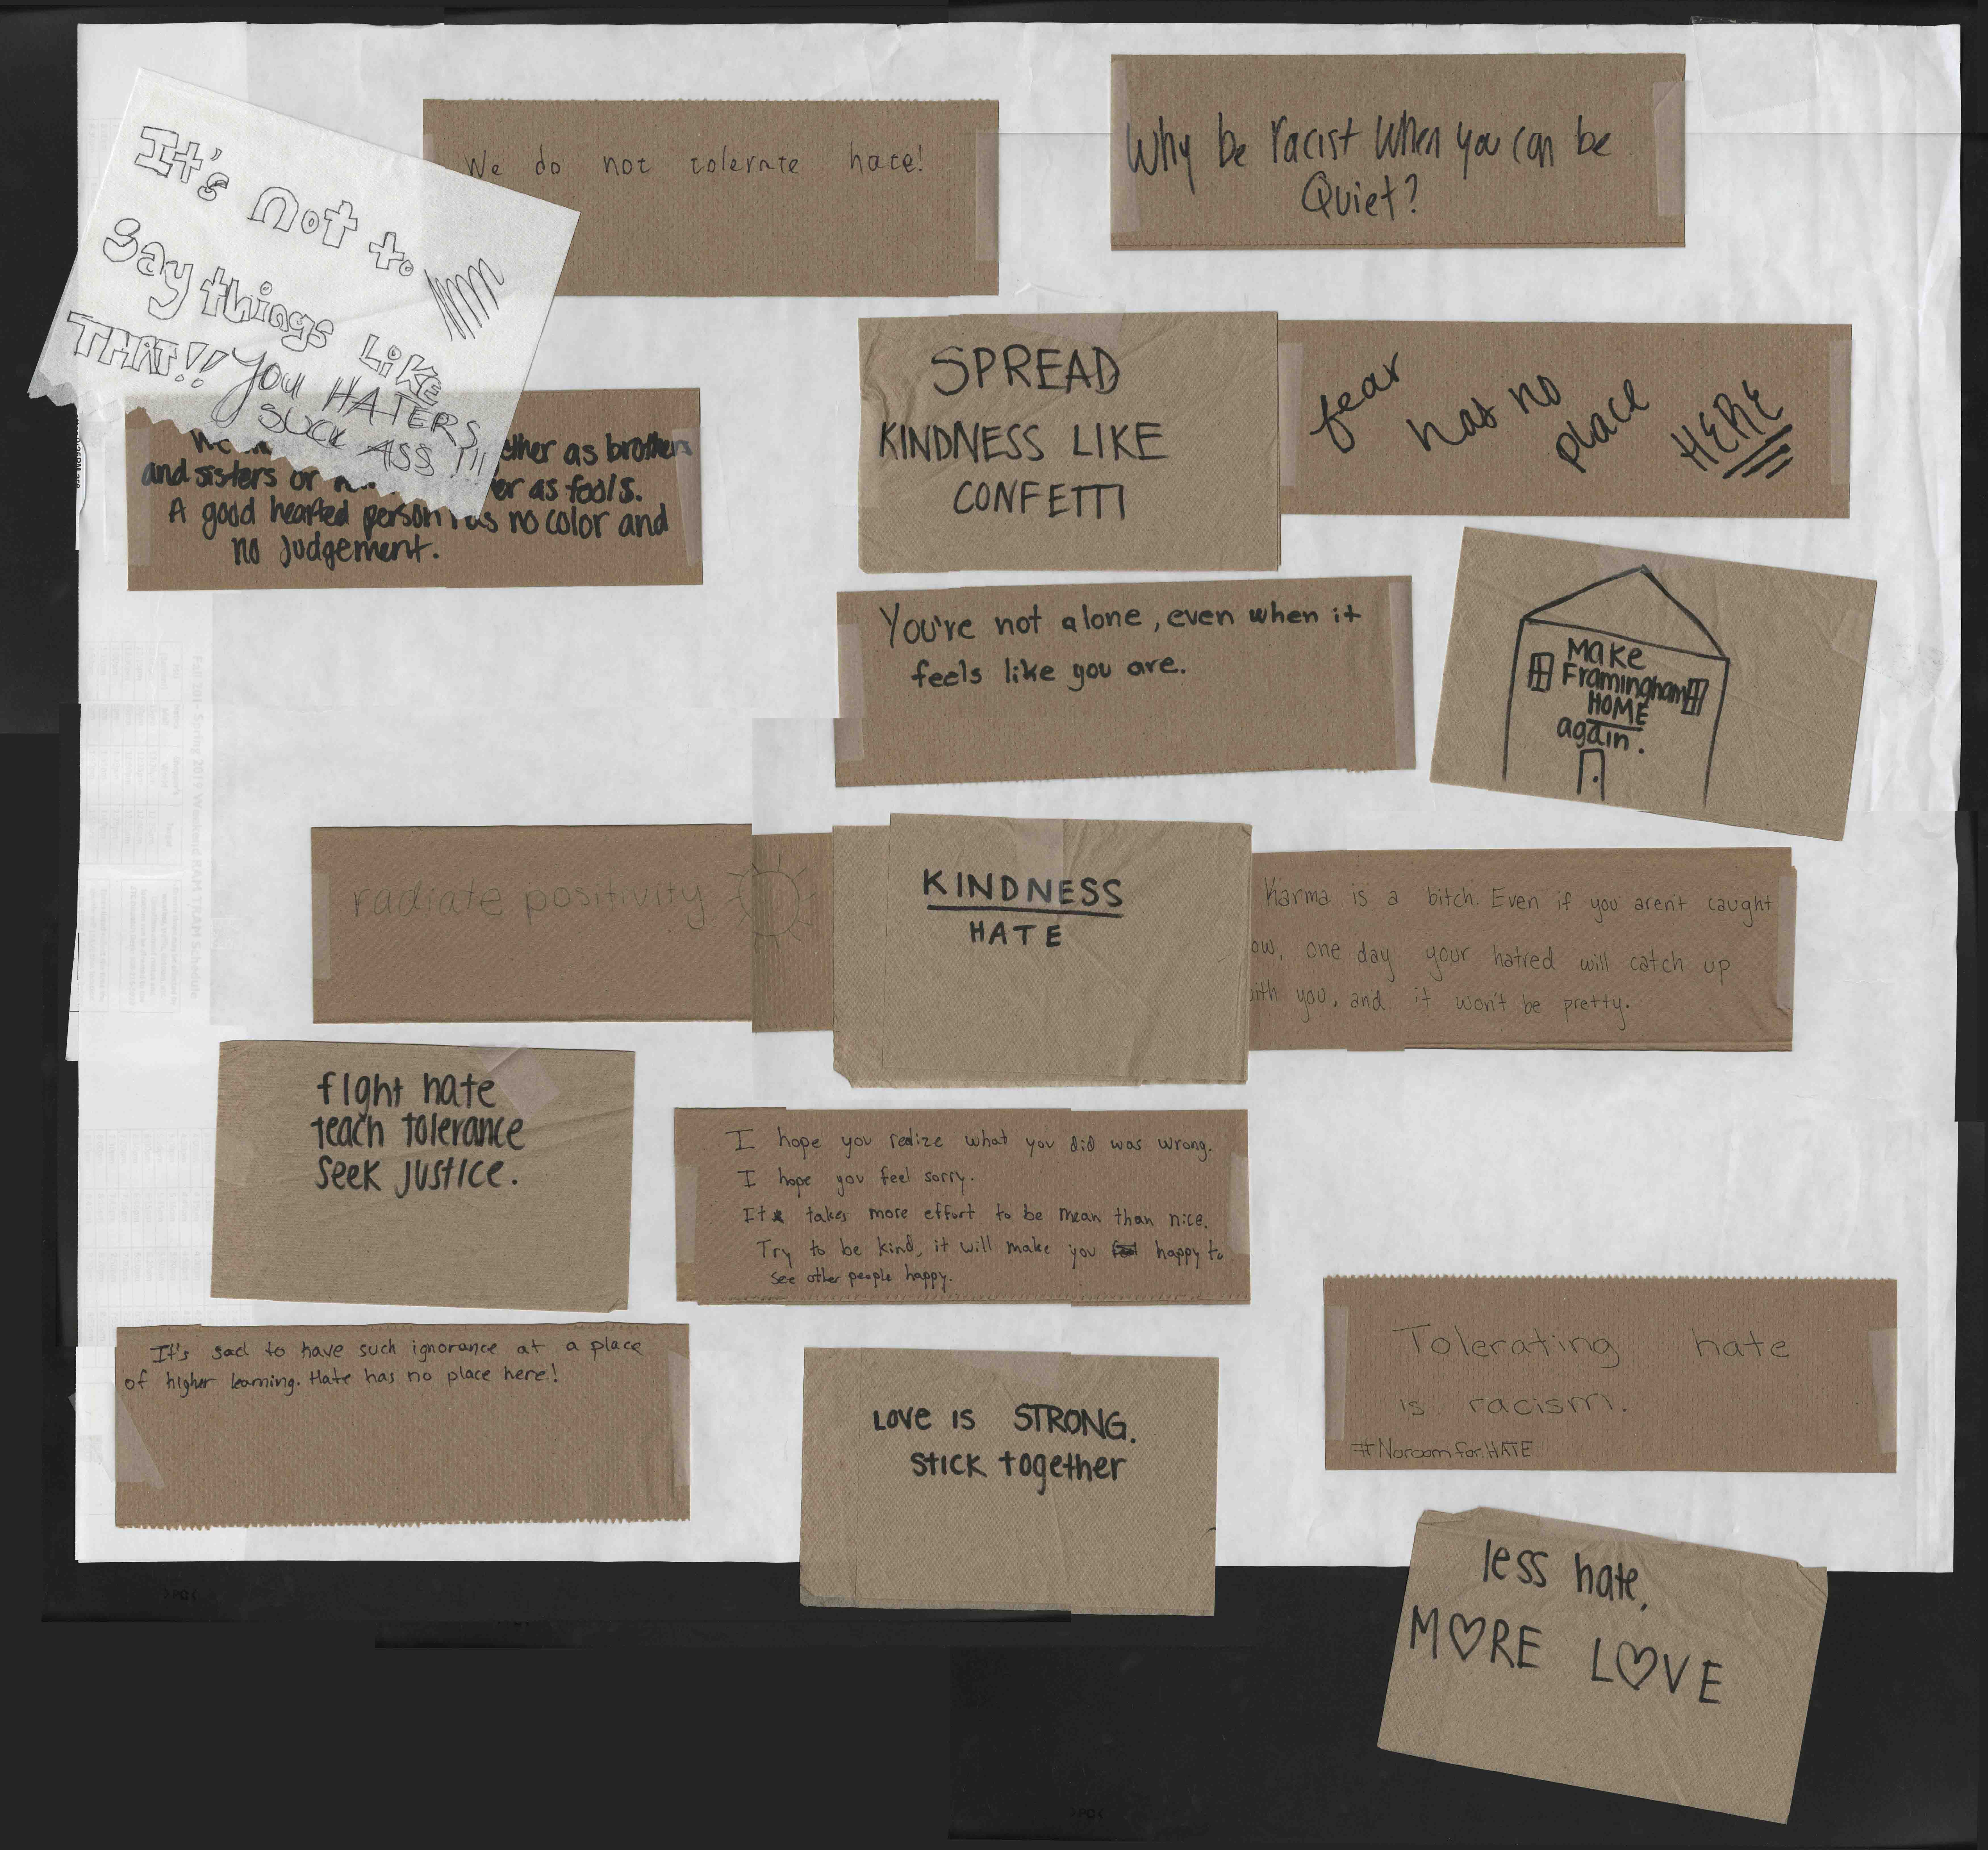 It's not to
say things LIKE
THAT!! You HATERS
SUCK ASS !!!
We do not tolerate hate!
Why be racist when you can be
Quiet?
ether as brothers
and sisters or er as fools.
A good hearted person has no color and
no judgement.
SPREAD
KINDNESS LIKE
CONFETTI
fear
has no
place
HERE
You're not alone, even when it
feels like you are.
Make
Framingham
HOME
again.
radiate positivity
KINDNESS
HATE
Karma is a bitch. Even if you aren't caught
ow, one day your hatred will catch up
ith you, and it won't be pretty.
fight hate
teach tolerance
seek justice.
I hope you realize what you did was wrong.
I hope you feel sorry.
It takes more effort to be mean than nice.
Try to be kind, it will make you happy to
see other people happy.
It's sad to have such ignorance at a place
of higher learning. Hate has no place here!
LOVE IS STRONG.
STICK together
Tolerating hate
is racism.
#NoroomforHATE
less hate,
M♡RE L♡VE